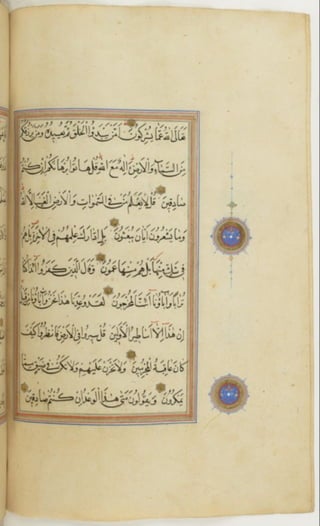 تعالى الله عما يشركون امن يبدؤا الخلق ثم يعيده ومن يرزقكم
من السماء والارض ءاله مع الله قل هاتوا برهانكم ان كنتم
صادقين قل لا يعلم من في السموات والارض الغيب الا الله
وما يشعرون ايان يبعثون بل ادارك علمهم في الاخرة بل هم
في شك منها بل هم منها عمون وقال الذين كفروا ءاذا كنا
ترابا واباؤنا ائنا لمخرجون لقد وعدنا هذا نحن واباؤنا من قبل
ان هذا الا اساطير الاولين قل سيروا في الارض فانظروا كيف
كان عاقبة المجرمين ولا تحزن عليهم ولا تكن في ضيق مما
يمكرون ويقولون متى هذا الوعد ان كنتم صادقين